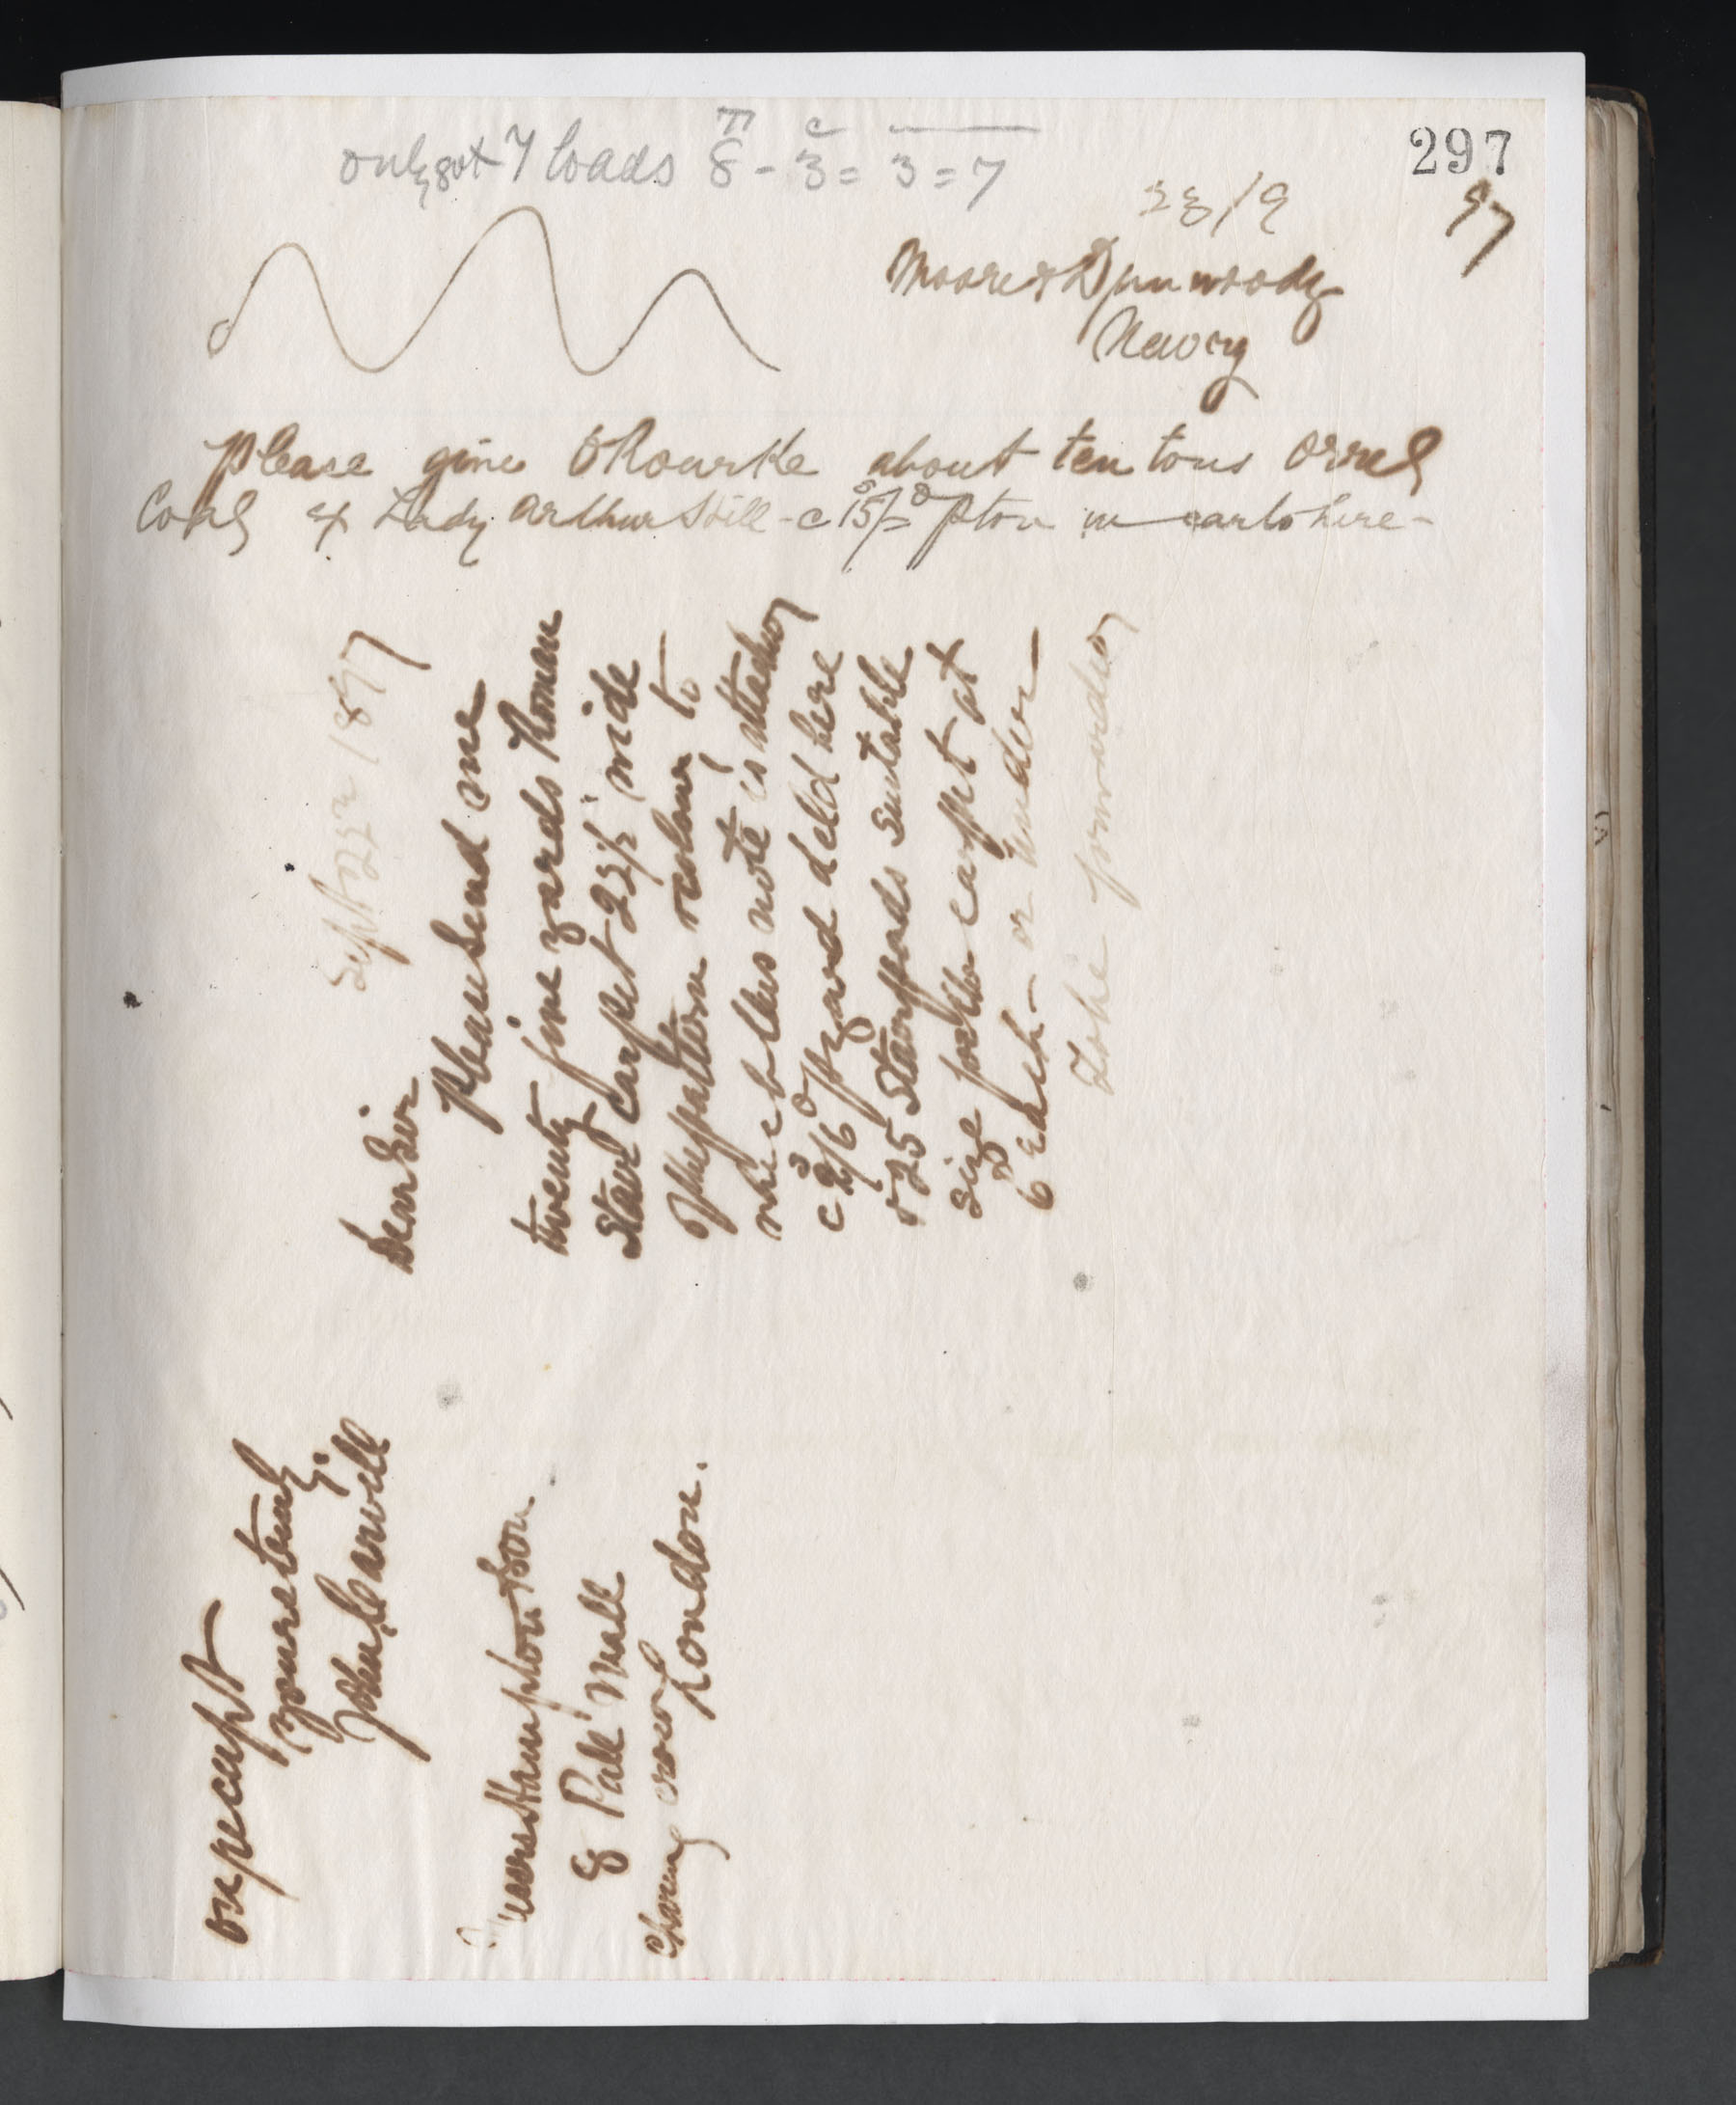 297
only got 7 loads
T c
8 - 3 = 3 = 7
23/9 97
Moore & Dunwoody
Newry
Please give O'Rourke about ten tons Orrel
Coal ex Lady Arthur Hill - @ 15/= p ton in carts here -
Sept 23rd 1897
Dear Sir
Please send me
twenty five yards Roman
Stair Carpet 22½ wide
of the pattern & colour to
which this note is attached
@ 2/6 p yard deld here
& 25 Stair pads suitable
size for the carpet at
6d each - or under
To be forwarded
on receipt
yours truly.
John Carvill
Messrs Hampton & Son.
8 Pall Mall
Charing Cross
London.